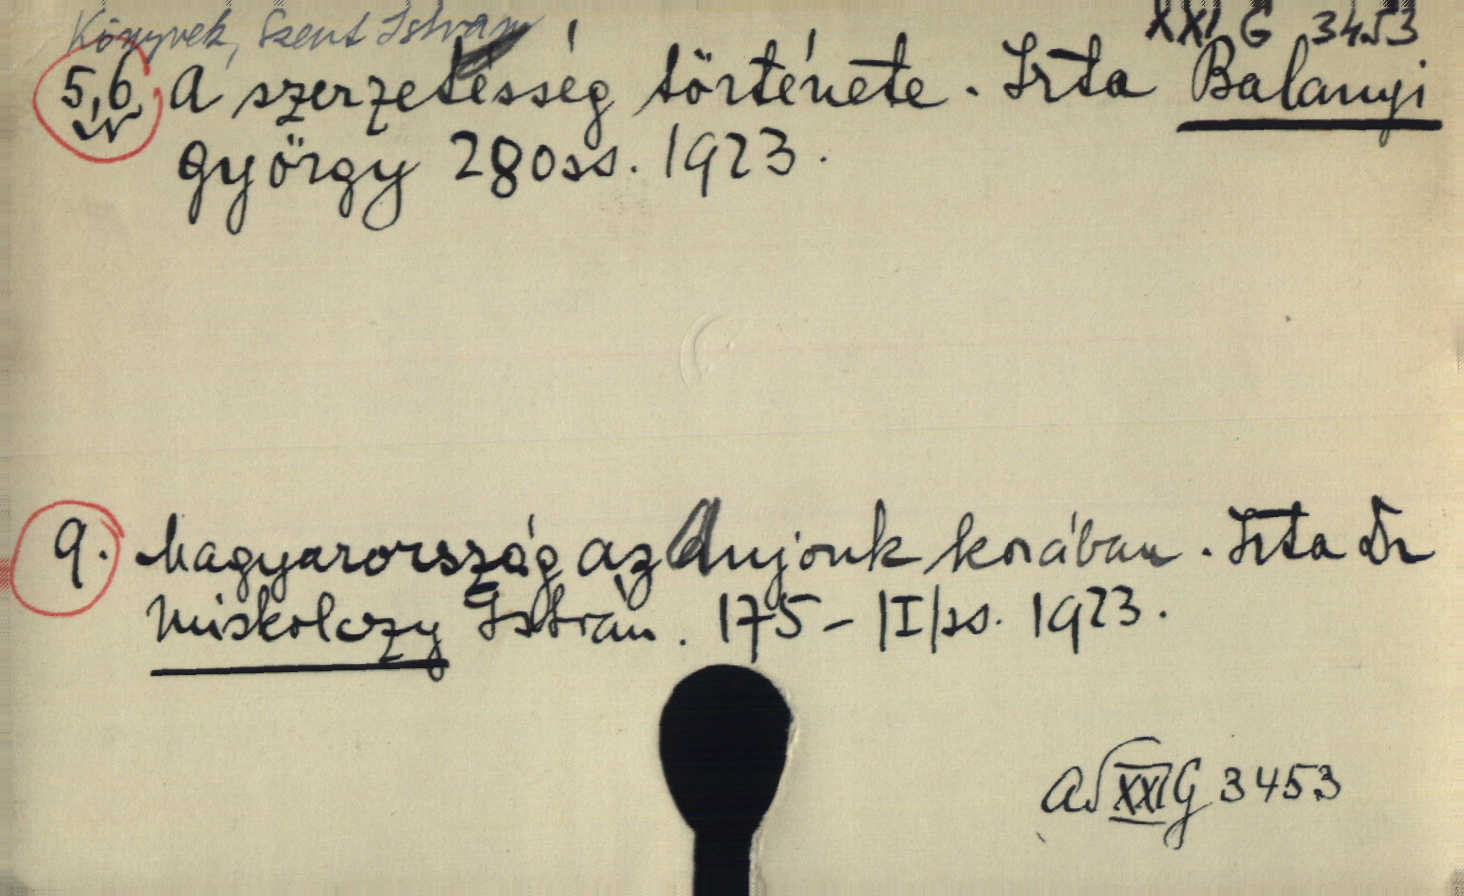 Könyvek, Szent István XXI G 3453
5,6. A szerzetesség története. Irta Balanyi
György 280ss. 1923.
9. Magyarország az Anjouk korában. Irta Dr
Miskolczy István. 175-|I|ss. 1923.
XXI G 3453